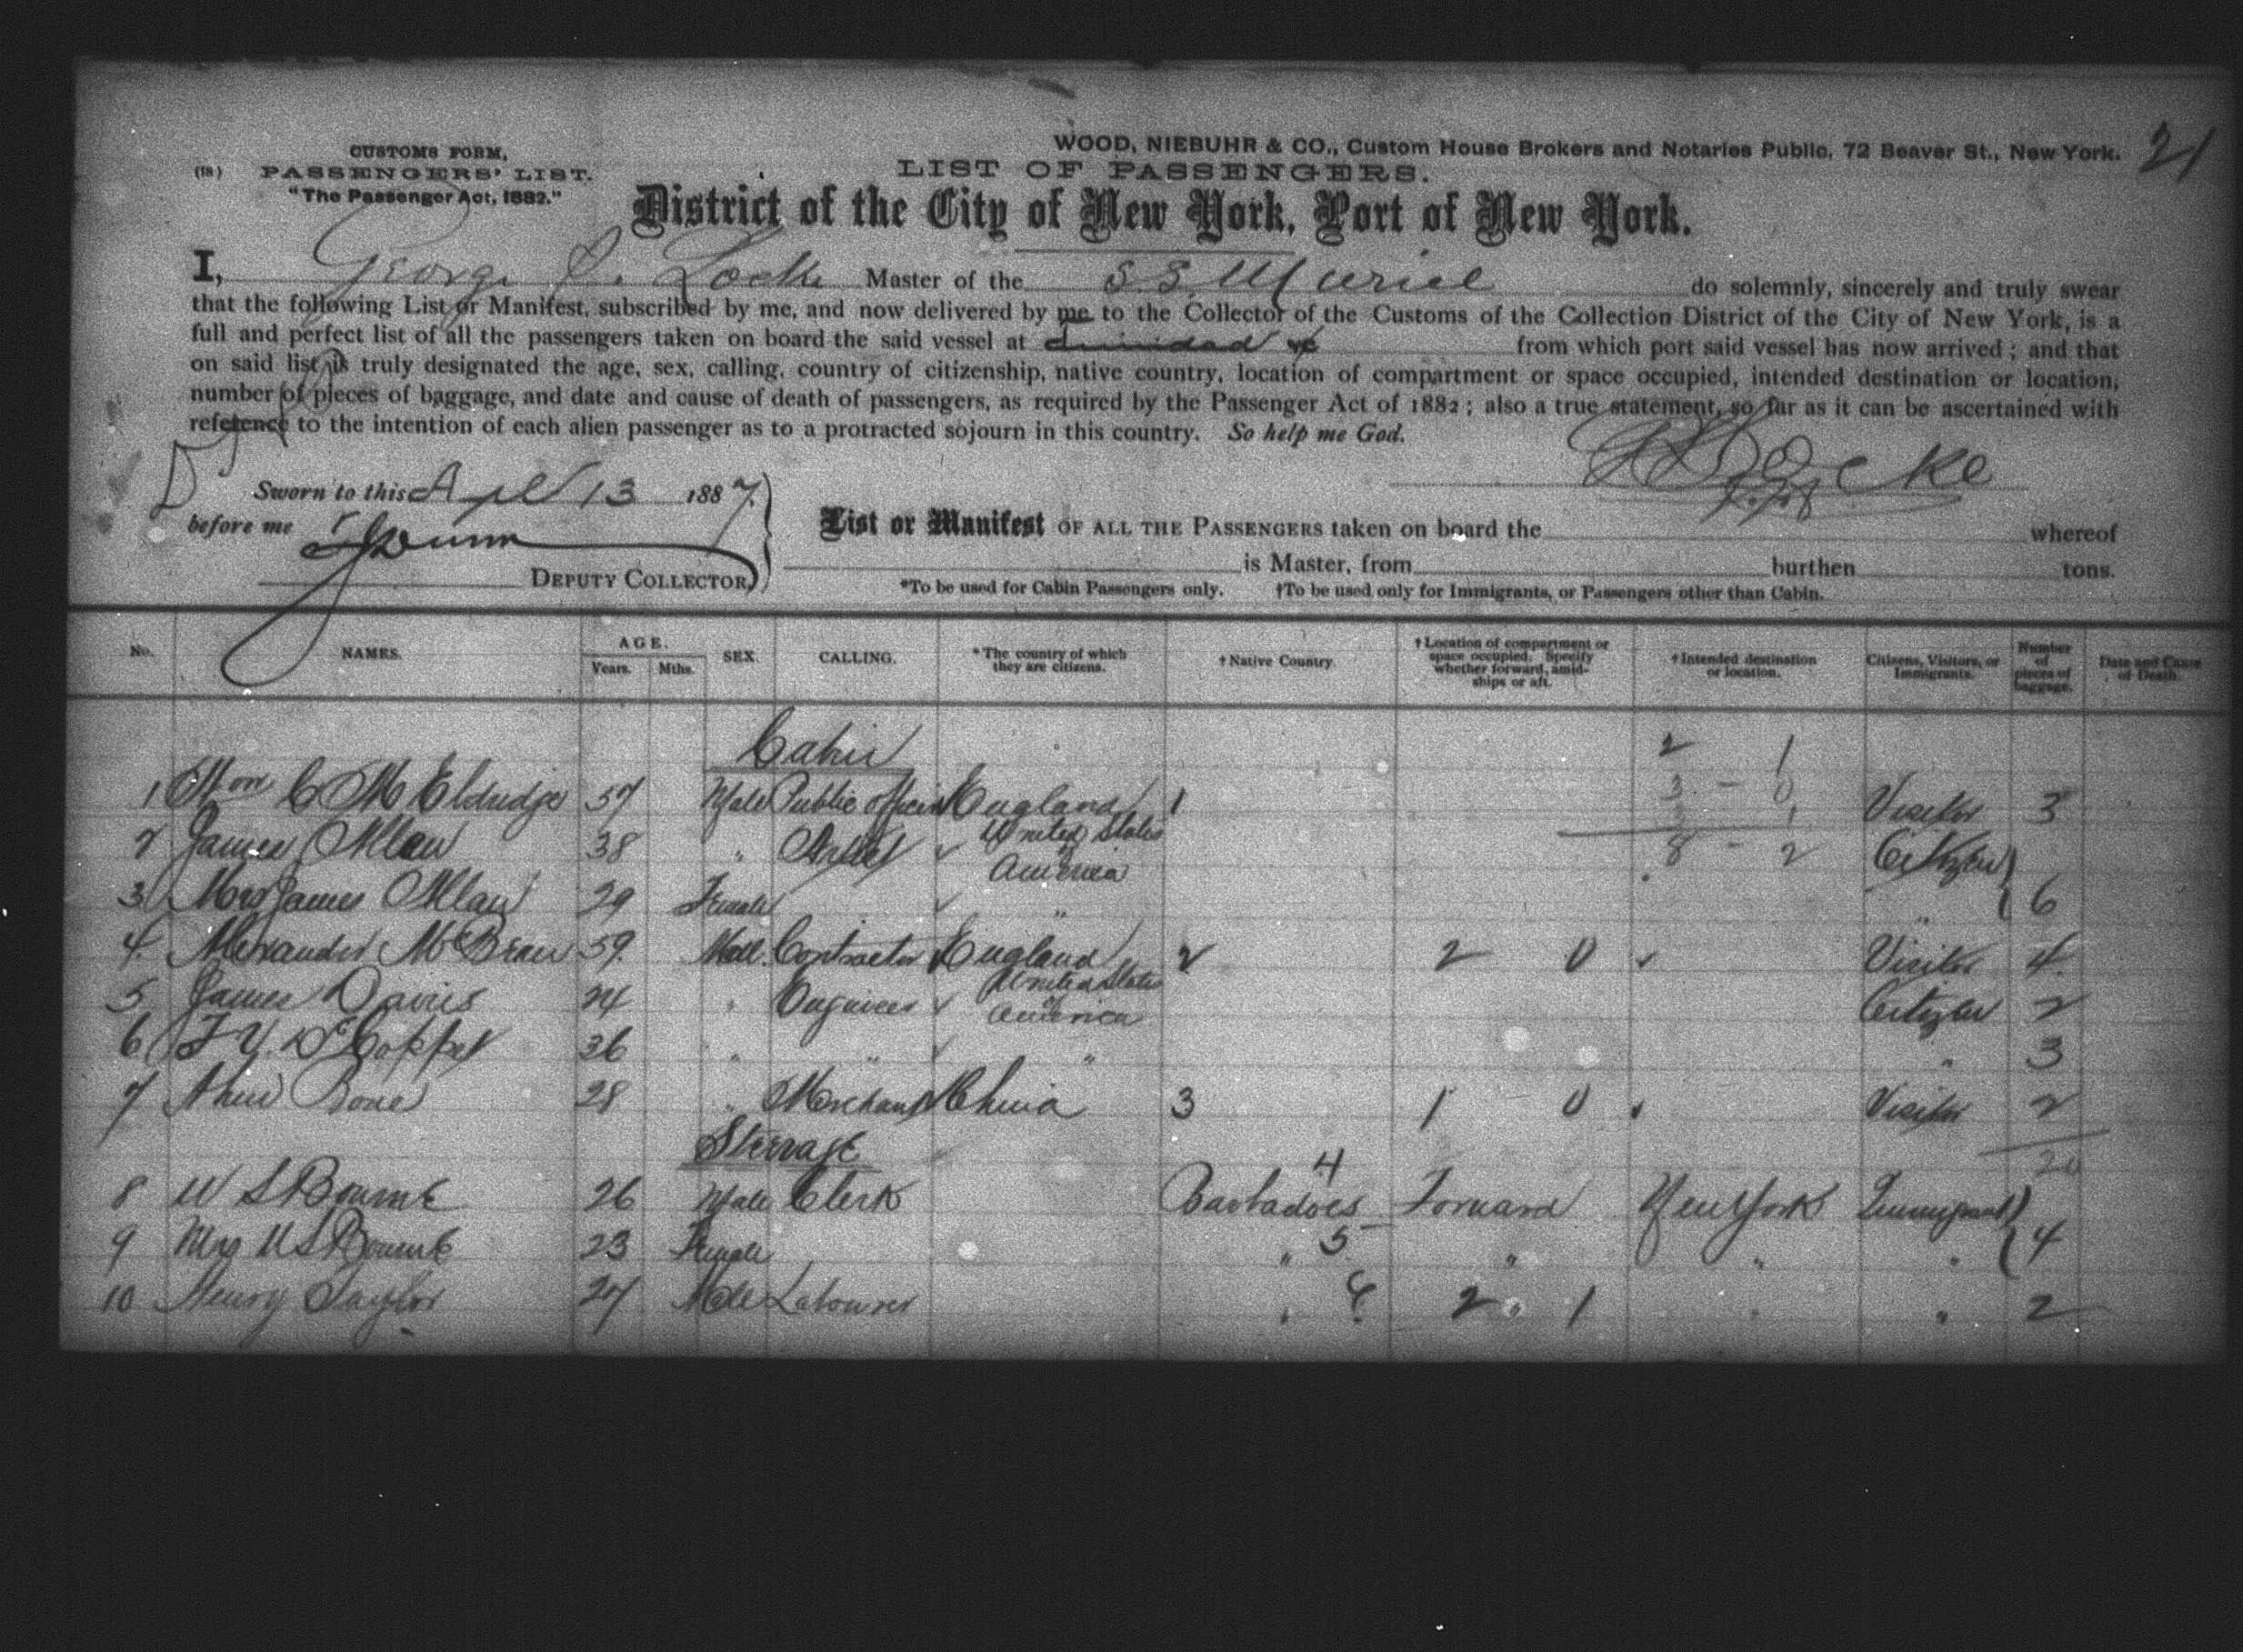 21
WOOD, NIEBUHR & CO., Custom House Brokers and Notaries Public, 72 Beaver St., New York.
CUSTOMS FORM,
(18) PASSENGERS' LIST.
"The Passenger Act, 1882."
LIST OF PASSENGERS.
District of the City of New York, Port of New York.
I, George Locke Master of the S.S. Muriel do solemnly, sincerely and truly swear
that the following List or Manifest, subscribed by me, and now delivered by me to the Collector of the Customs of the Collection District of the City of New York, is a
full and perfect list of all the passengers taken on board the said vessel at Trinidad from which port said vessel has now arrived; and that
on said list is truly designated the age, sex, calling, country of citizenship, native country, location of compartment or space occupied, intended destination or location,
number of pieces of baggage, and date and cause of death of passengers, as required by the Passenger Act of 1882; also a true statement, so far as it can be ascertained with
reference to the intention of each alien passenger as to a protracted sojourn in this country. So help me God.
Locke
Sworn to this Apl 13 1887.
before me
DEPUTY COLLECTOR
List or Manifest OF ALL THE PASSENGERS taken on board the whereof
is Master, from burthen tons.
*To be used for Cabin Passengers only. †To be used only for Immigrants, or Passengers other than Cabin.
No. NAMES. AGE. Years. Mths. SEX. CALLING. *The country of which they are citizens. †Native Country. †Location of compartment or space occupied. Specify whether forward, amidships or aft. †Intended destination or location. Citizens, Visitors, or Immigrants. Number of pieces of baggage. Date and Cause of Death.
Cabin 2 1
3 - 0
1 Hon C M Eldridge 57 Male Public officer England 1 Visitor 3
8 - 2
2 James Allan 38 " Artist United States of America Citizen
3 Mrs James Allan 29 Female " " 6
4. Alexander McBean 59. Male. Contractor England 2 2 0 Visitor 4.
5 James Davies 24 " Engineer United States of America Citizen 2
6 F Y. D Coppet 36 " " " " 3
7 28 " Merchant China 3 1 0 Visitor 2
Steerage 20
8 W S Bourne 26 Male Clerk Barbadoes 4 Forward New York Immigrant
9 Mrs W S Bourne 23 Female " 5 " " " 4
10 Henry Taylor 27 Male Labourer " 6 2 " 1 " " 2